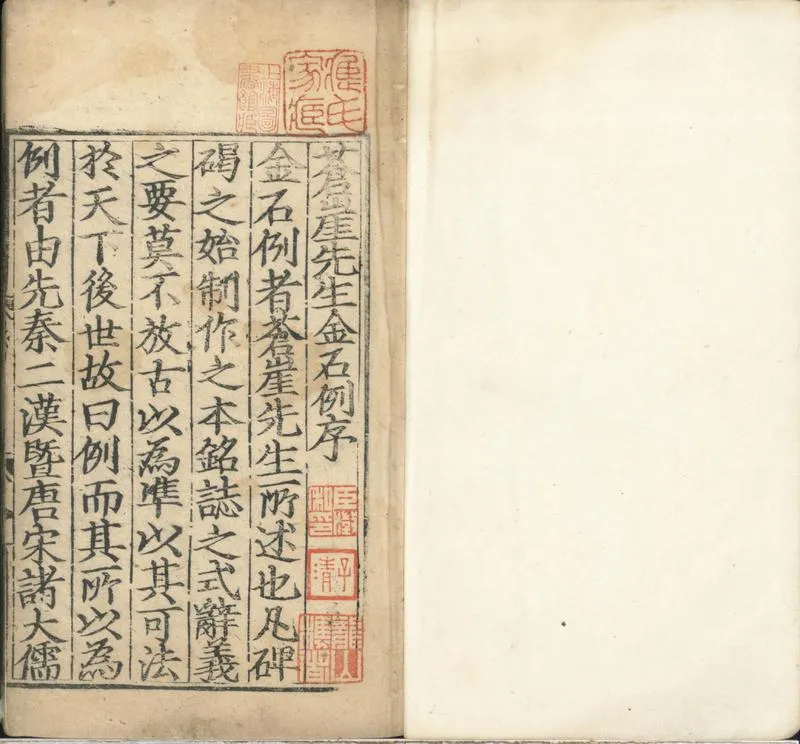 蒼崖先生金石例序
金石例者蒼崖先生所述也凡碑
碣之始制作之本銘誌之式辭義
之要莫不放古以為準以其可法
於天下後世故曰例而其所以為
例者由先秦二漢暨唐宋諸大儒
上海圖書館藏
子清